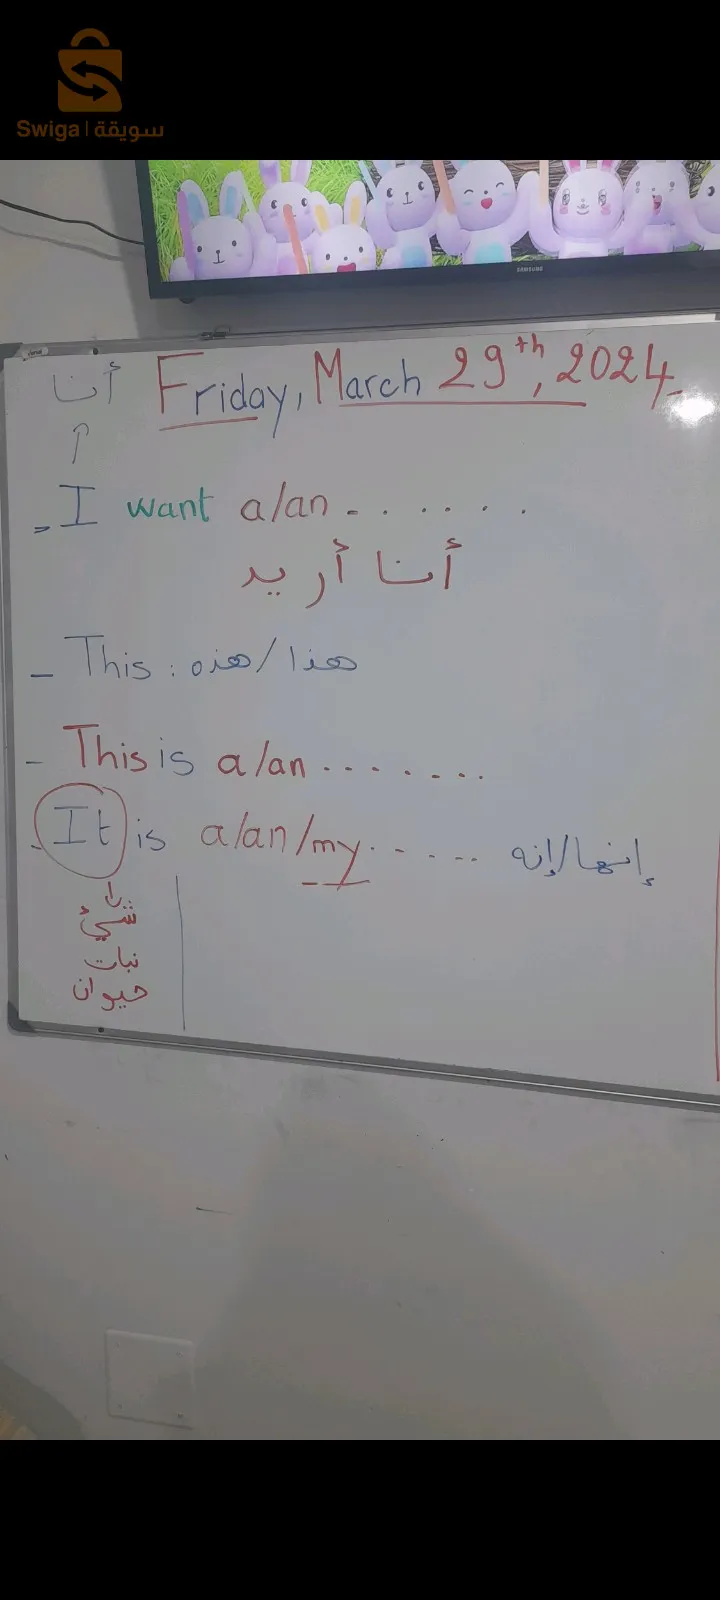 Swiga | سويقة
SAMSUNG
أنا
Friday, March 29th, 2024
I want a/an . . . . . . .
أنا أريد
- This : هذا/هذه
- This is a/an . . . . . . .
- It is a/an/my . . . . . إنها/إنه
شيء
نبات
حيوان